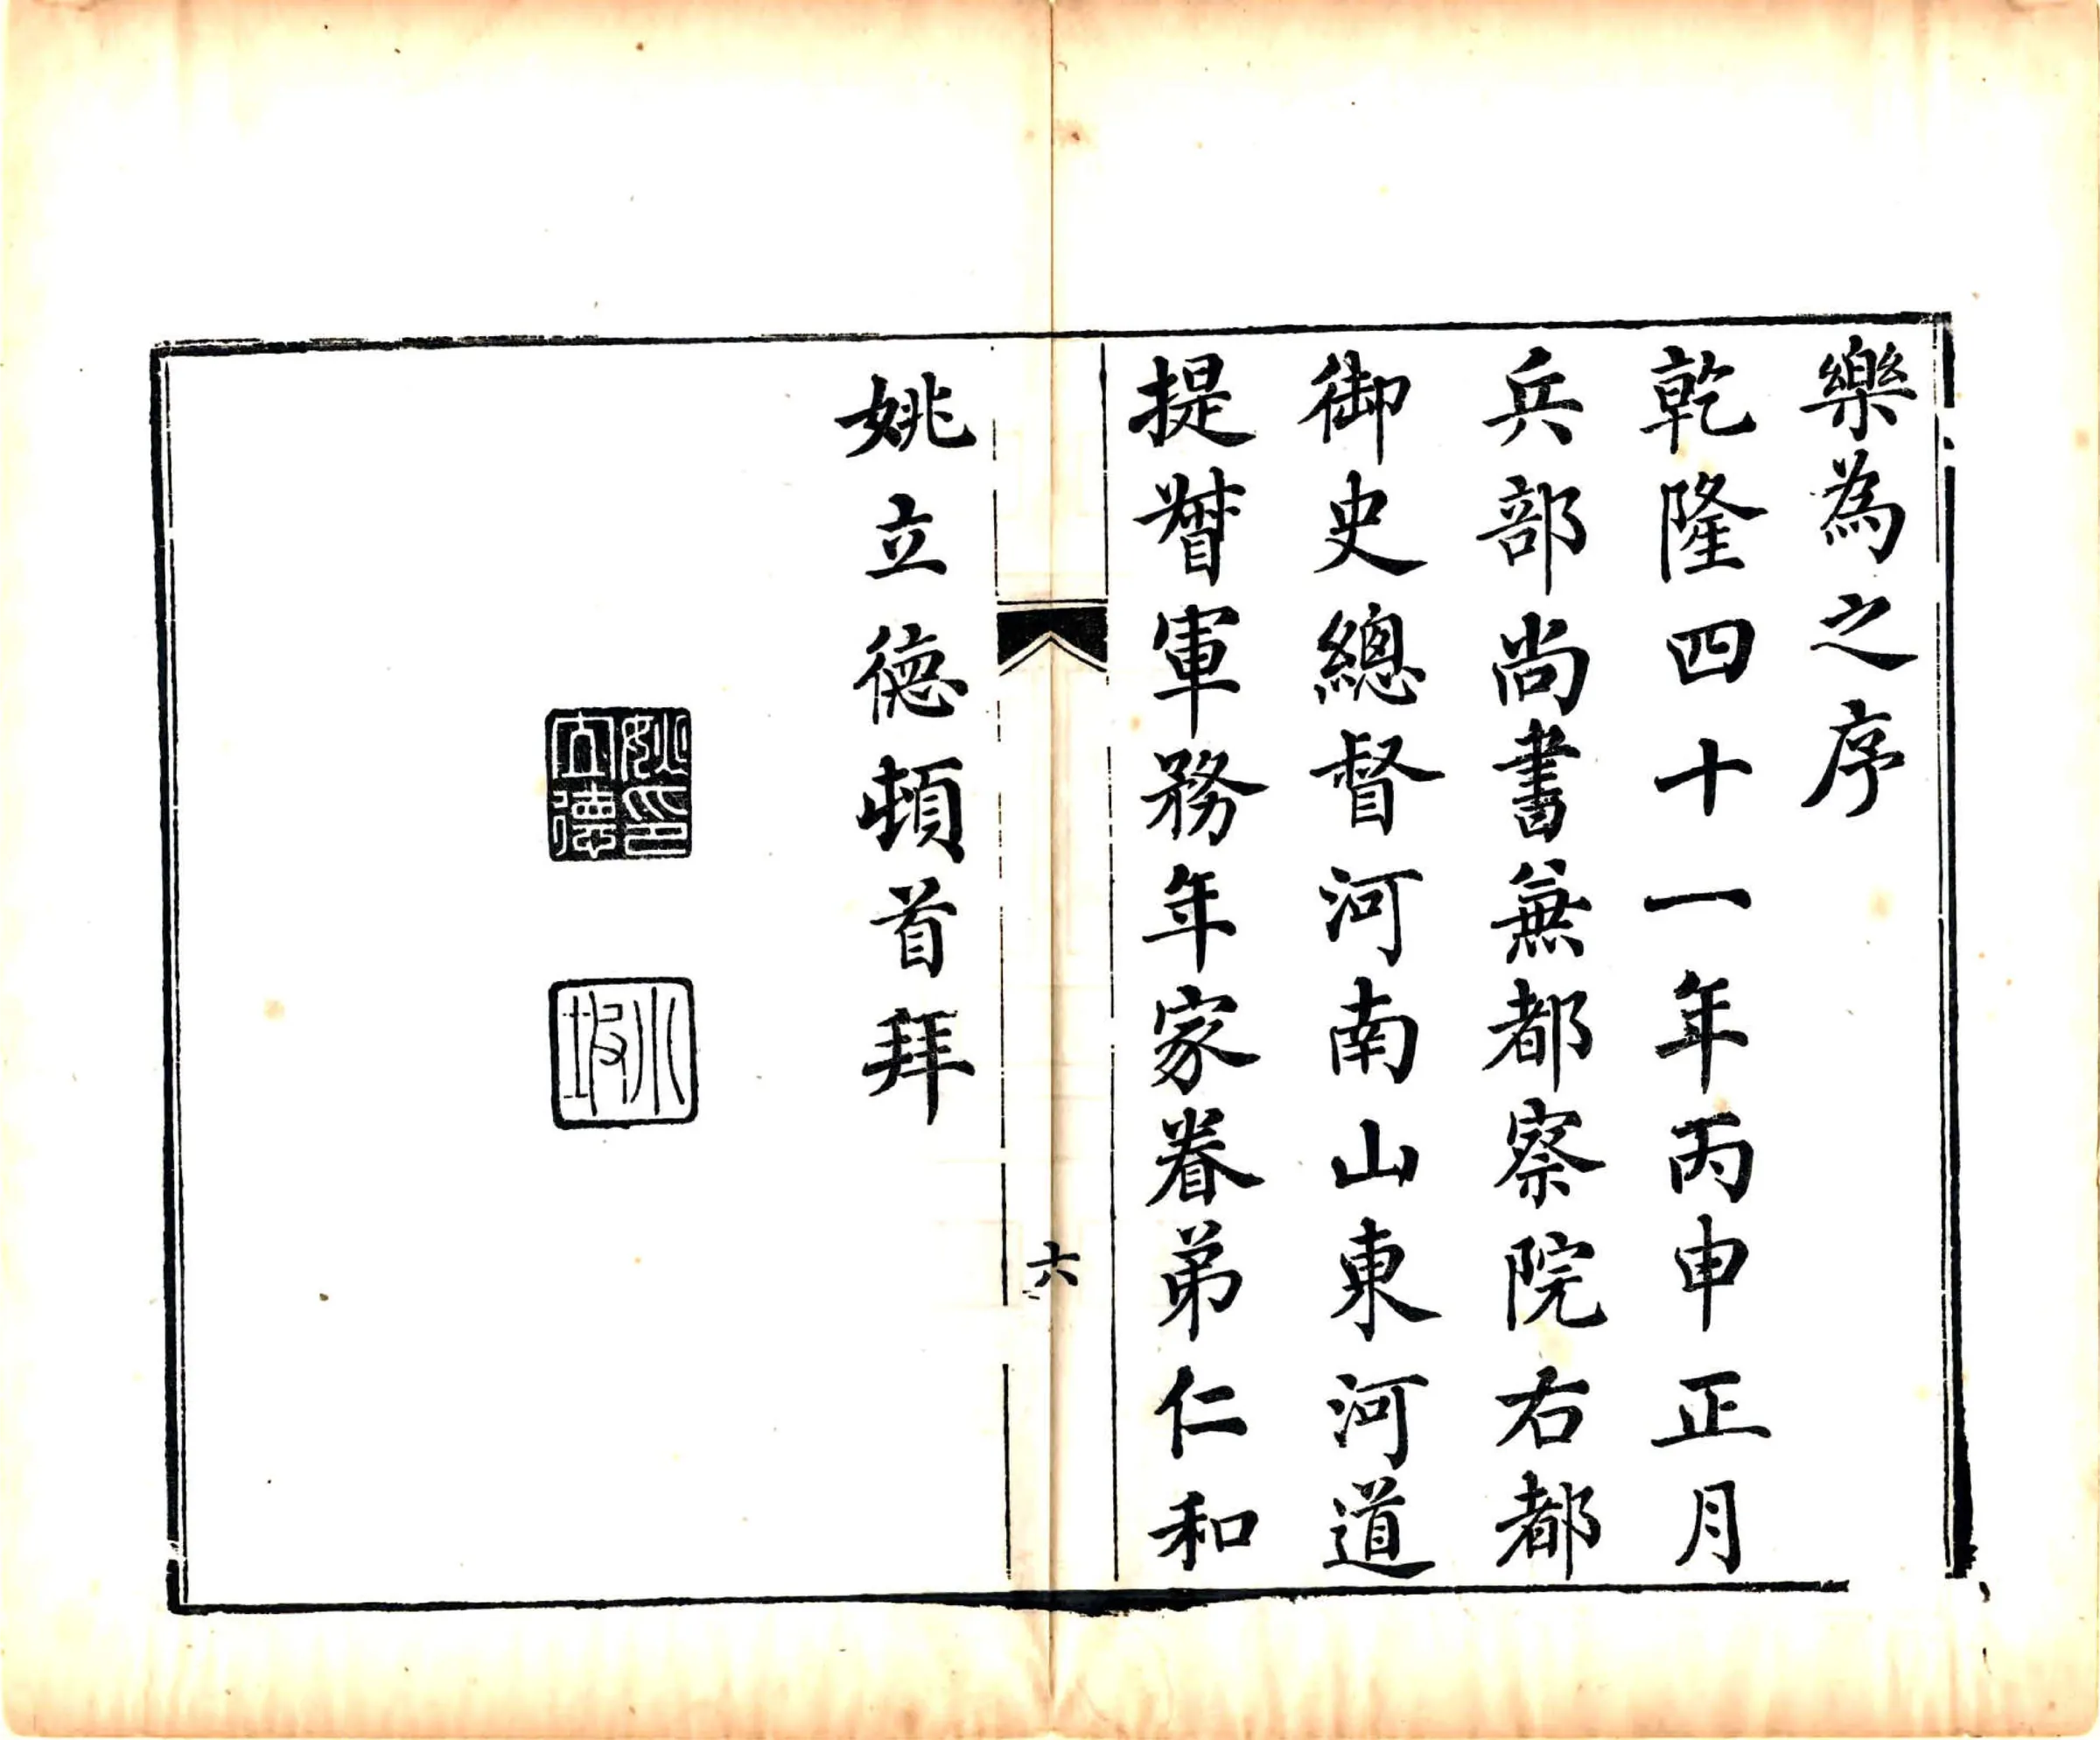 樂為之序
乾隆四十一年丙申正月
兵部尚書兼都察院右都
御史總督河南山東河道
提督軍務年家眷弟仁和
六
姚立德頓首拜
姚印
立德
小坡